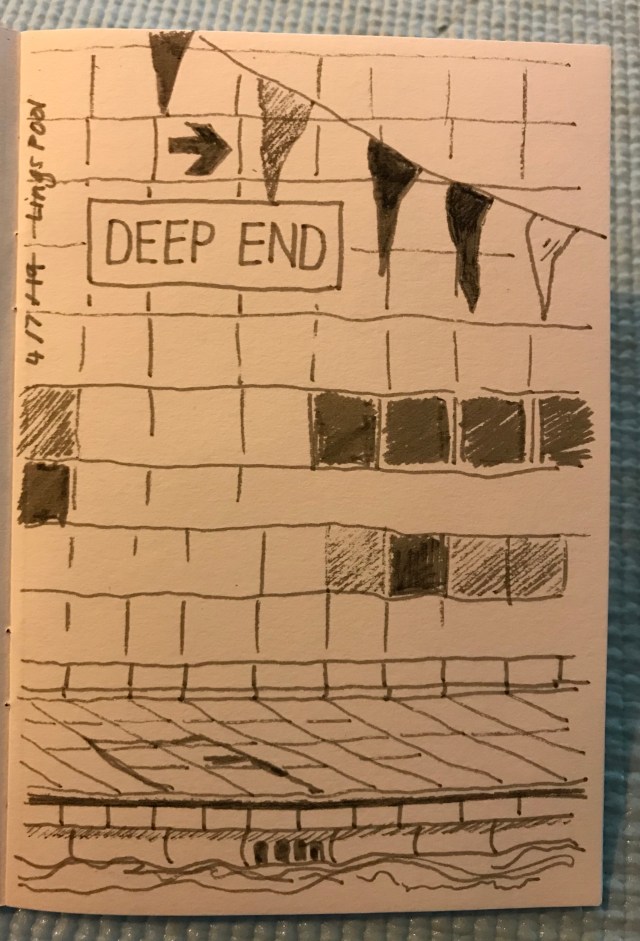 DEEP END
4/7/19 Lings Pool